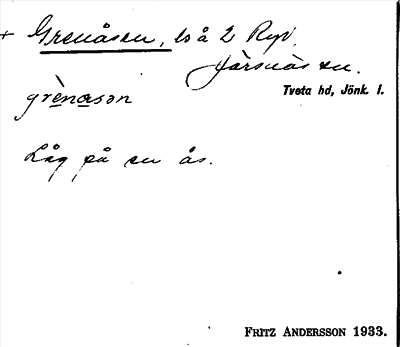 + Grenåsen, ls å 2 Ryv.
Järsnäs sn.
Tveta hd, Jönk. l.
grènasən
Låg på en ås.
FRITZ ANDERSSON 1933.